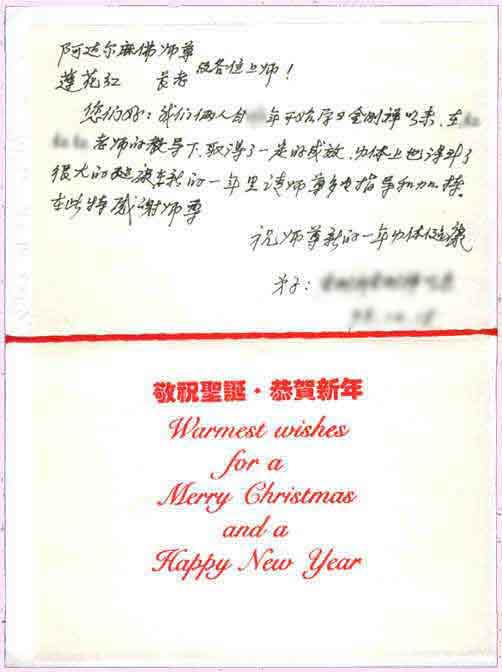 阿达尔麻佛师尊
莲花红 长老 及各位上师！
您们好：我们俩人自 年开始学习金刚禅以来，在
老师的教导下，取得了一定的成效，身体上也得到了
很大的 新的一年里请师尊多 指导和加持
在此特感谢师尊
祝师尊新的一年身体健康
弟子：
敬祝聖誕·恭賀新年
Warmest wishes
for a
Merry Christmas
and a
Happy New Year